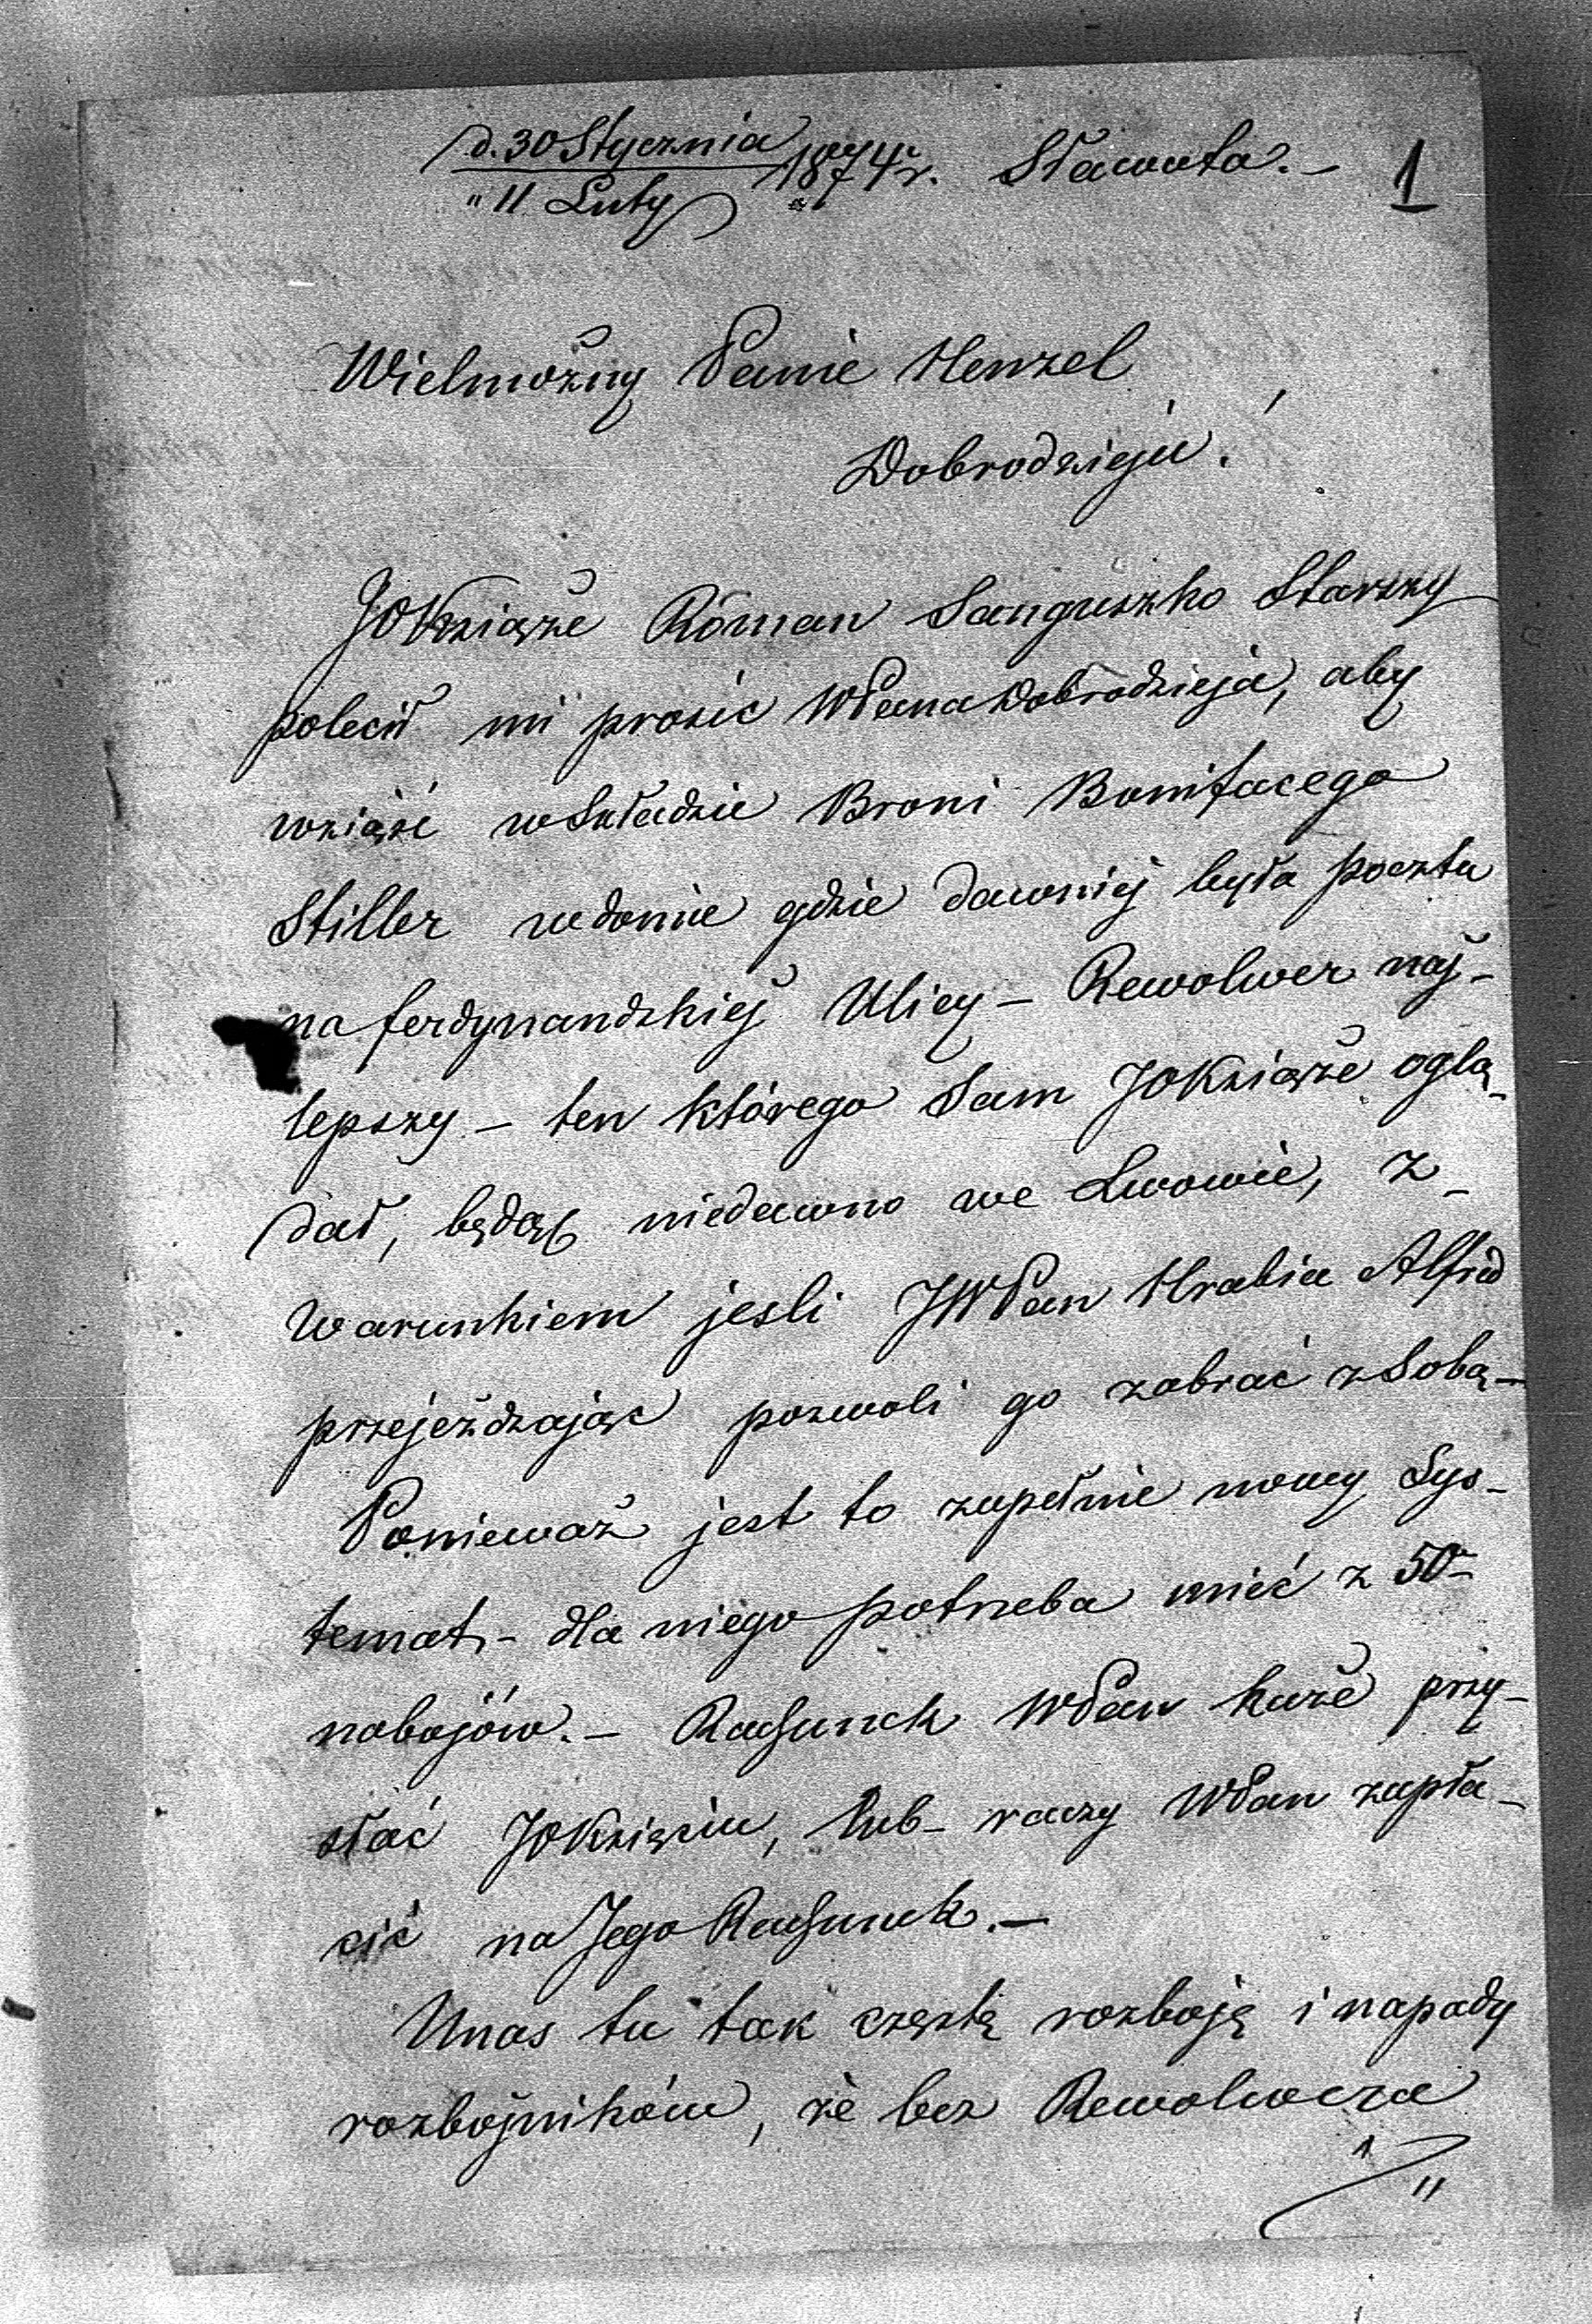 d. 30 Stycznia 1874 r. Sławuta. – 1
" 11 Luty
Wielmożny Panie Henzel
Dobrodzieju!
JOKsiąże Roman Sanguszko Starszy
polecił mi prosić WPana Dobrodzieja, aby
wziąść w Składzie Broni Bonifacego
Stiller w domie gdzie dawniej była poczta
na ferdynandzkiej Ulicy – Rewolwer naj-
lepszy – ten którego Sam JOKsiąże oglą-
dał, będąc niedawno we Lwowie, z-
warunkiem jesli JWPan Hrabia Alfred
przejeżdzając pozwoli go zabrać z Sobą –
Ponieważ jest to zupełnie nowy Sys-
temat, – dla niego potrzeba mieć z 50–
nabojów. – Rachunek WPan każe przy-
słać JOKsięciu, lub – raczy WPan zapła-
cić na Jego Rachunek. –
U nas tu tak częstę rozboję i napady
rozbójników, że bez Rewolwera